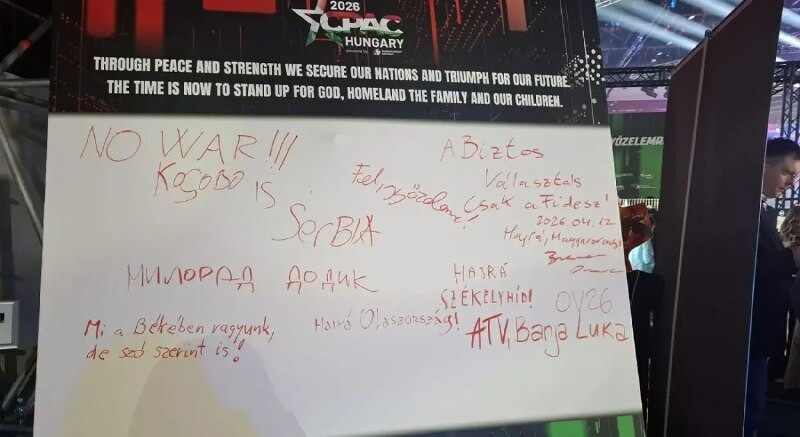 2026
CPAC
HUNGARY
THROUGH PEACE AND STRENGTH WE SECURE OUR NATIONS AND TRIUMPH FOR OUR FUTURE.
THE TIME IS NOW TO STAND UP FOR GOD, HOMELAND THE FAMILY AND OUR CHILDREN.
NO WAR!!!
KOSOBO IS
SerBIA
Fel, győzelemre!
A Biztos
Választás
csak a Fidesz!
2026.04.12
Hajrá, Magyarország!
МИЛОРАД ДОДИК
HAJRÁ
SZÉKELYHÍD!
OV26
Mi a Békében vagyunk,
de szó szerint is!
Hajrá Olaszország!
ATV, Banja Luka
YŐZELEMR